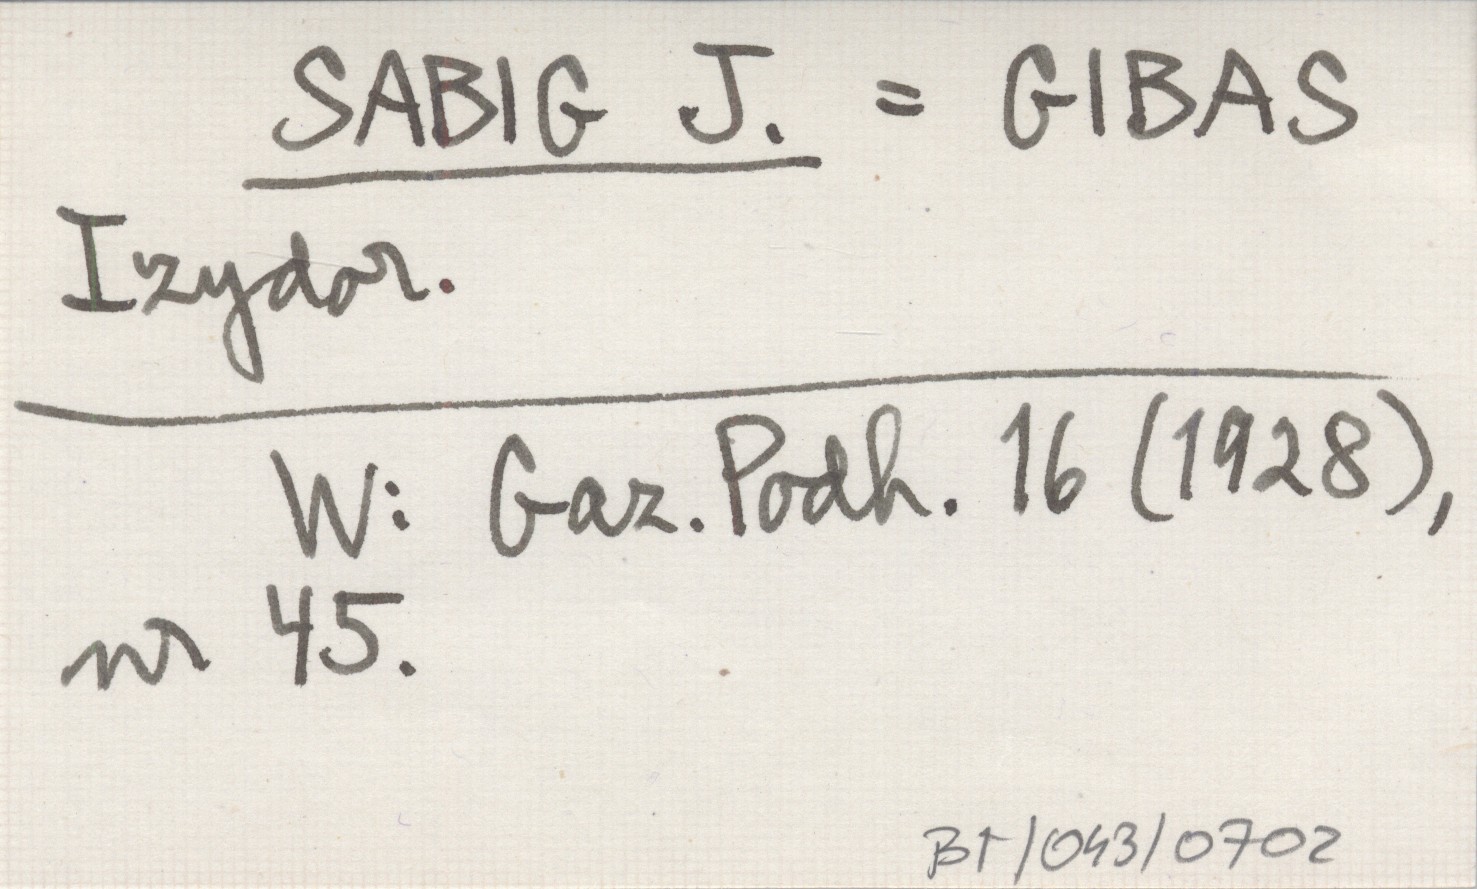 SABIG J. = GIBAS
Izydor.
W: Gaz. Podh. 16 (1928),
nr 45.
BT/043/0702